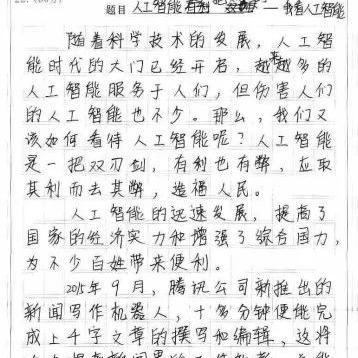 题目 人工智能有利 一 我看人工智能
随着科学技术的发展，人工智
能时代的大门已经开启，越来越多的
人工智能服务于人们，但伤害人们
的人工智能也不少。那么，我们又
该如何看待人工智能呢？人工智能
是一把双刃剑，有利也有弊，应取
其利而去其弊，造福人民。
人工智能的迅速发展，提高了
国家的经济实力和增强了综合国力，
为不少百姓带来便利。
2015年9月，腾讯公司新推出的
新闻写作机器人，十多分钟便能完
成上千字文章的撰写和编辑，这将